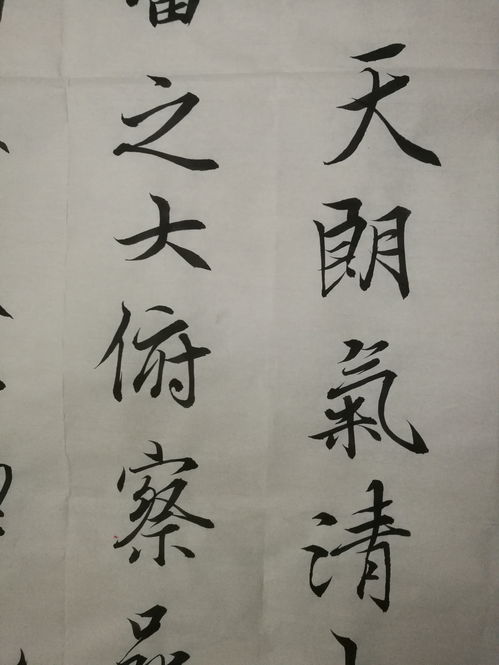 天朗氣清
之大俯察品